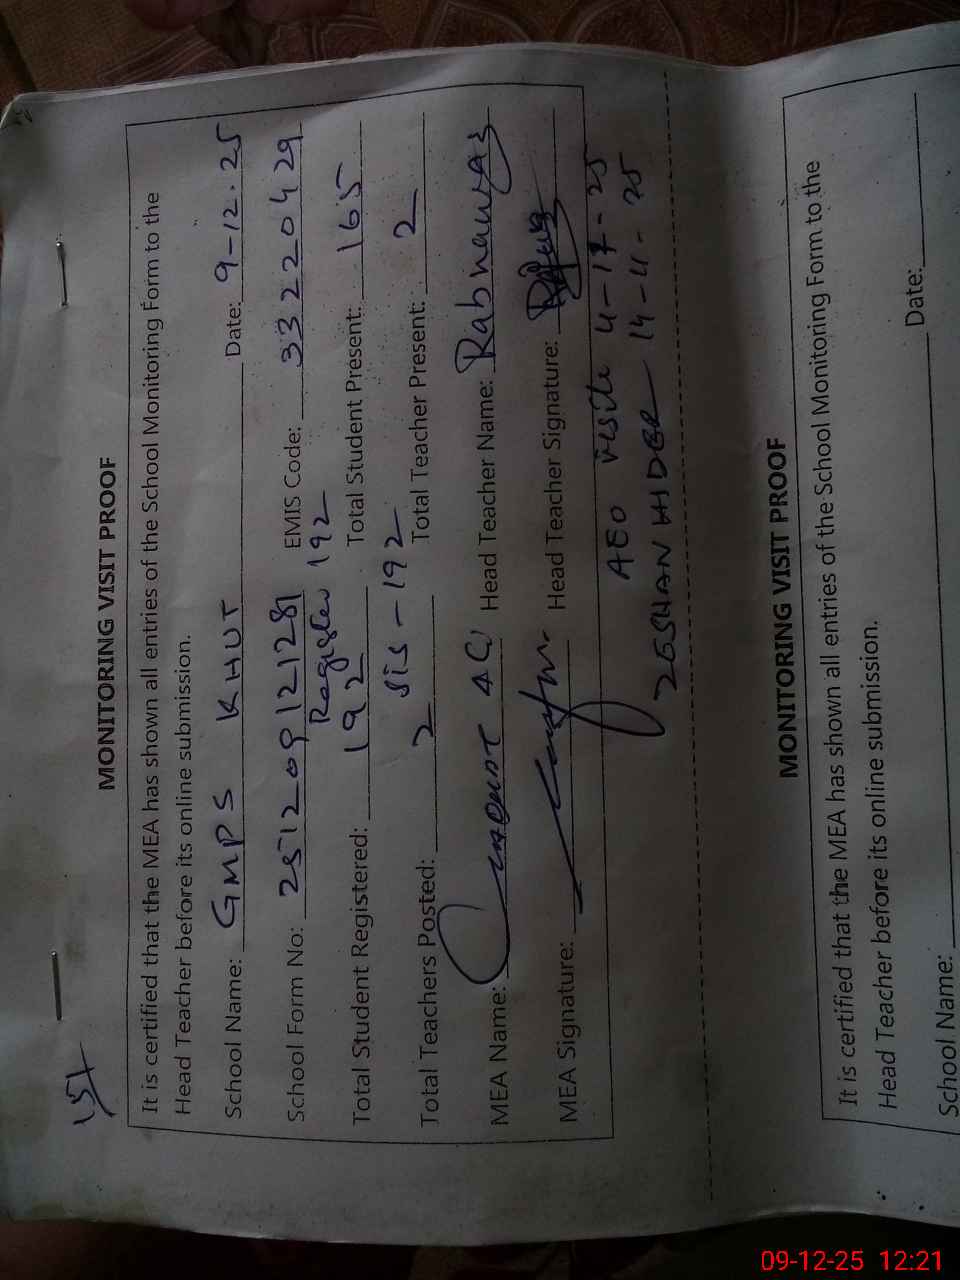 1st
MONITORING VISIT PROOF
It is certified that the MEA has shown all entries of the School Monitoring Form to the
Head Teacher before its online submission.
School Name: GMPS KHUT Date: 9-12-25
School Form No: 251209121281 EMIS Code: 33220429
Register 192
Total Student Registered: 192 Total Student Present: 165
Sis-192
Total Teachers Posted: 2 Total Teacher Present: 2
MEA Name: Head Teacher Name: Rabnawaz
MEA Signature: Head Teacher Signature:
AEO visite
14-11-25
MONITORING VISIT PROOF
It is certified that the MEA has shown all entries of the School Monitoring Form to the
Head Teacher before its online submission.
School Name: Date:
09-12-25 12:21